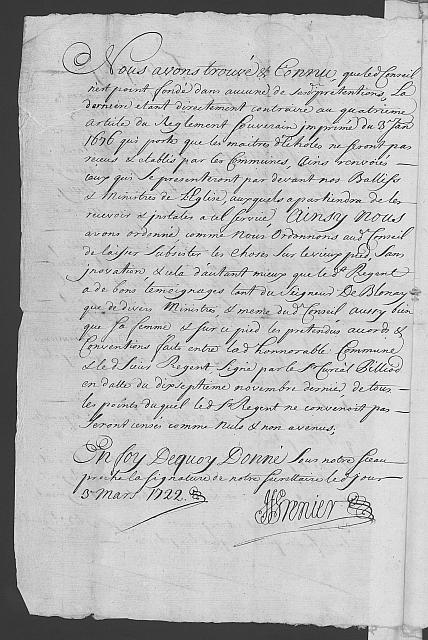 Nous avons trouvé & Connu, que led Conseil
n'est point fondé dans aucune de Sesd prétentions, La
derniere etant directement contraire au quatrieme
article du Reglement Souverain imprimé du 3e Jan
1676 qui porte que les maitres d'Ecoles ne Seront pas
receus & etablis par les Communes, Ains renvoiés
ceux qui Se presenteront par devant nos Ballifs
& Ministres de L'Eglise, auxquels apartiendra de les
recevoir & installer a tel Service Ainsy Nous
avons ordonné comme Nous Ordonnons aud Conseil
de laisser Subsister les choses Sur le vieux pied, Sans
jnovation, & cela d'autant mieux que led Sr Regent
a de bons temoignages tant du Seigneur De Blonay
que de divers Ministres, & meme dud Conseil aussy bien
que Sa femme, & Sur ce pied les pretendus acords &
Conventions faite entre lad honnorable Commune
& led Sieur Regent Signé par le Sr Curial Billiod
en datte du dixseptieme novembre dernié, de tous
les points duquel led Sr Regent ne convenoit pas
Seront censés comme nuls & non avenus,
En foy Dequoy Donné Sous notre Sceau
proche la Signature de notre Secretaire led jour
3e Mars 1722.
Grenier